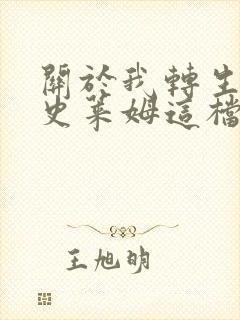 關於我轉生
史萊姆這檔
王旭明